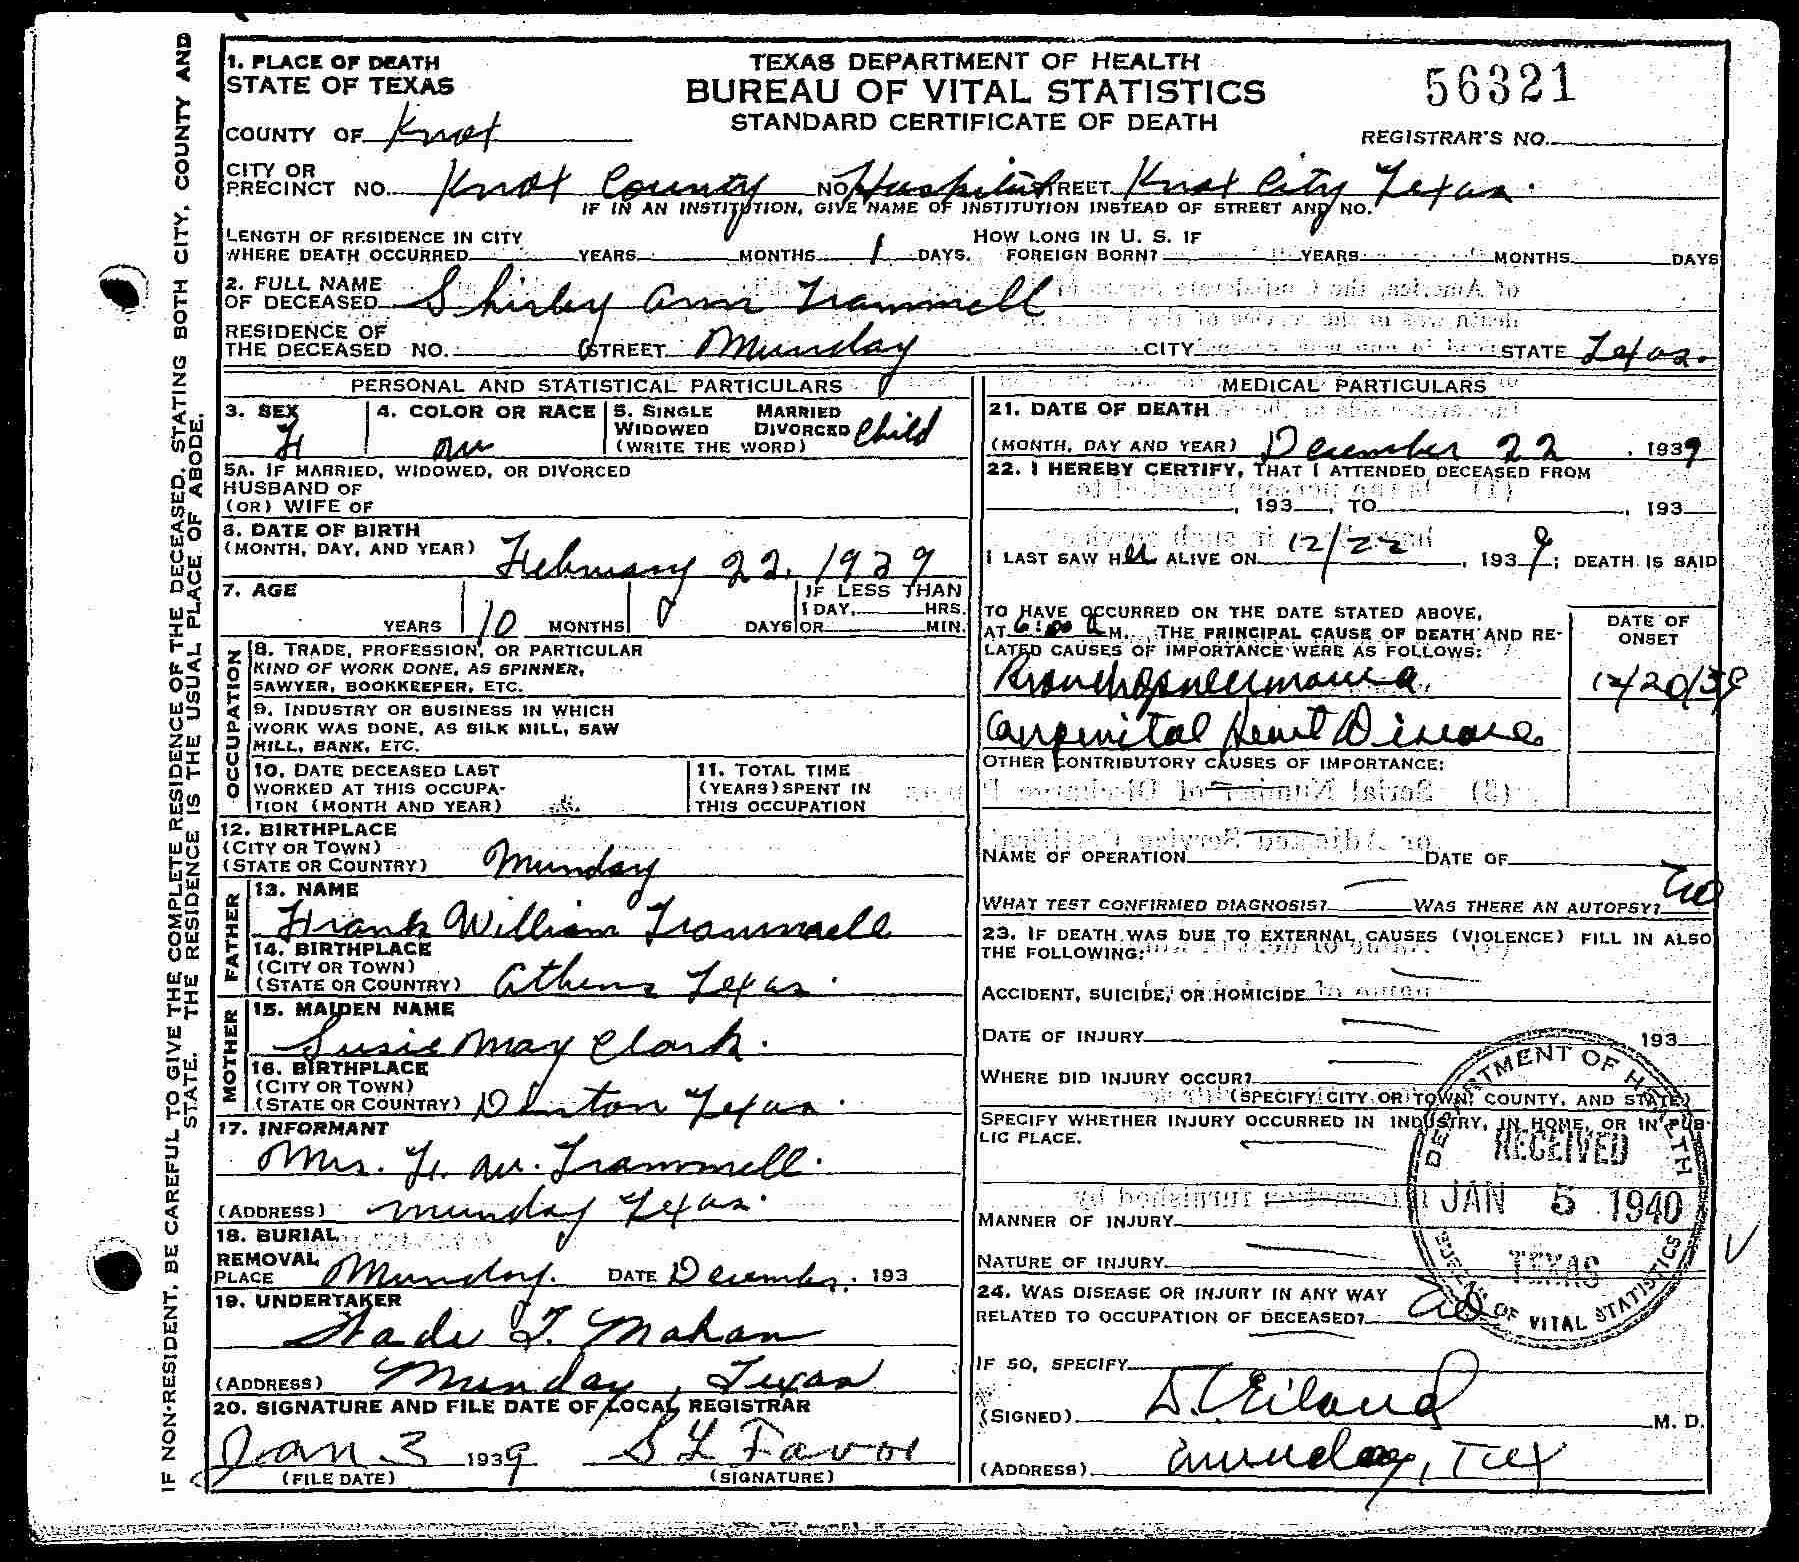 IF NON-RESIDENT, BE CAREFUL TO GIVE THE COMPLETE RESIDENCE OF THE DECEASED, STATING BOTH CITY, COUNTY AND
STATE. THE RESIDENCE IS THE USUAL PLACE OF ABODE.
1. PLACE OF DEATH
STATE OF TEXAS
TEXAS DEPARTMENT OF HEALTH
BUREAU OF VITAL STATISTICS
STANDARD CERTIFICATE OF DEATH
56321
COUNTY OF Knox
REGISTRAR'S NO.
CITY OR
PRECINCT NO. Knox County NO. Hospital STREET Knox City Texas.
IF IN AN INSTITUTION, GIVE NAME OF INSTITUTION INSTEAD OF STREET AND NO.
LENGTH OF RESIDENCE IN CITY
WHERE DEATH OCCURRED YEARS MONTHS 1 DAYS.
HOW LONG IN U. S. IF
FOREIGN BORN? YEARS MONTHS DAYS
2. FULL NAME
OF DECEASED Shirley Ann Trammell
RESIDENCE OF
THE DECEASED NO. STREET Munday CITY STATE Texas.
PERSONAL AND STATISTICAL PARTICULARS
3. SEX F
4. COLOR OR RACE W
5. SINGLE MARRIED
WIDOWED DIVORCED Child
(WRITE THE WORD)
5A. IF MARRIED, WIDOWED, OR DIVORCED
HUSBAND OF
(OR) WIFE OF
6. DATE OF BIRTH
(MONTH, DAY, AND YEAR) February 22, 1939
7. AGE
YEARS 10 MONTHS 0 DAYS
IF LESS THAN
1 DAY, HRS.
OR MIN.
OCCUPATION
8. TRADE, PROFESSION, OR PARTICULAR
KIND OF WORK DONE, AS SPINNER,
SAWYER, BOOKKEEPER, ETC.
9. INDUSTRY OR BUSINESS IN WHICH
WORK WAS DONE, AS SILK MILL, SAW
MILL, BANK, ETC.
10. DATE DECEASED LAST
WORKED AT THIS OCCUPA-
TION (MONTH AND YEAR)
11. TOTAL TIME
(YEARS) SPENT IN
THIS OCCUPATION
12. BIRTHPLACE
(CITY OR TOWN)
(STATE OR COUNTRY) Munday
FATHER
13. NAME
Frank William Trammell
14. BIRTHPLACE
(CITY OR TOWN)
(STATE OR COUNTRY) Athens Texas.
MOTHER
15. MAIDEN NAME
Susie May Clark.
16. BIRTHPLACE
(CITY OR TOWN)
(STATE OR COUNTRY) Denton Texas.
17. INFORMANT
Mrs. F. W. Trammell.
(ADDRESS) Munday Texas.
18. BURIAL
REMOVAL
PLACE Munday. DATE December. 193
19. UNDERTAKER
Wade T. Mahan
(ADDRESS) Munday, Texas
20. SIGNATURE AND FILE DATE OF LOCAL REGISTRAR
Jan 3 1939 S L Favor
(FILE DATE) (SIGNATURE)
MEDICAL PARTICULARS
21. DATE OF DEATH
(MONTH, DAY AND YEAR) December 22, 1939
22. I HEREBY CERTIFY, THAT I ATTENDED DECEASED FROM
, 193 , TO , 193
I LAST SAW HER ALIVE ON 12/22, 1939; DEATH IS SAID
TO HAVE OCCURRED ON THE DATE STATED ABOVE,
AT 6:00 A M. THE PRINCIPAL CAUSE OF DEATH AND RE-
LATED CAUSES OF IMPORTANCE WERE AS FOLLOWS:
DATE OF
ONSET
Bronchopneumonia. 12/20/39
Congenital Heart Disease
OTHER CONTRIBUTORY CAUSES OF IMPORTANCE:
NAME OF OPERATION DATE OF
WHAT TEST CONFIRMED DIAGNOSIS? WAS THERE AN AUTOPSY? no
23. IF DEATH WAS DUE TO EXTERNAL CAUSES (VIOLENCE) FILL IN ALSO
THE FOLLOWING:
ACCIDENT, SUICIDE, OR HOMICIDE
DATE OF INJURY 193
WHERE DID INJURY OCCUR?
(SPECIFY CITY OR TOWN, COUNTY, AND STATE)
SPECIFY WHETHER INJURY OCCURRED IN INDUSTRY, IN HOME, OR IN PUB-
LIC PLACE.
MANNER OF INJURY
NATURE OF INJURY
24. WAS DISEASE OR INJURY IN ANY WAY
RELATED TO OCCUPATION OF DECEASED? no
IF SO, SPECIFY
(SIGNED) D. C. Eiland M. D.
(ADDRESS) Munday, Tex
DEPARTMENT OF HEALTH
RECEIVED
JAN 5 1940
TEXAS
BUREAU OF VITAL STATISTICS